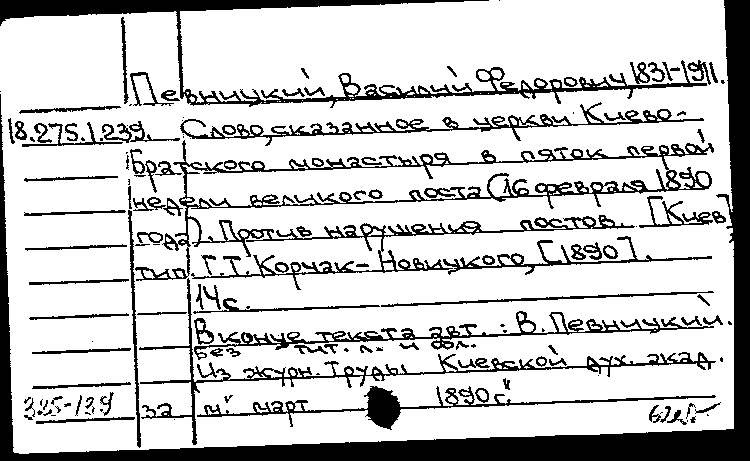 Певницкий, Василий Федорович, 1831-1911.
18.275.1.239. Слово, сказанное в церкви Киево-
Братского монастыря в пяток первой
недели великого поста (16 февраля 1890
года). Против нарушения постов. [Киев]
тип. Г.Т. Корчак-Новицкого, [1890].
14 с.
В конце текста авт.: В. Певницкий.
Без тит. л. и обл.
Из журн. Труды Киевской дух. акад.
325-139 за м." март 1890 г."